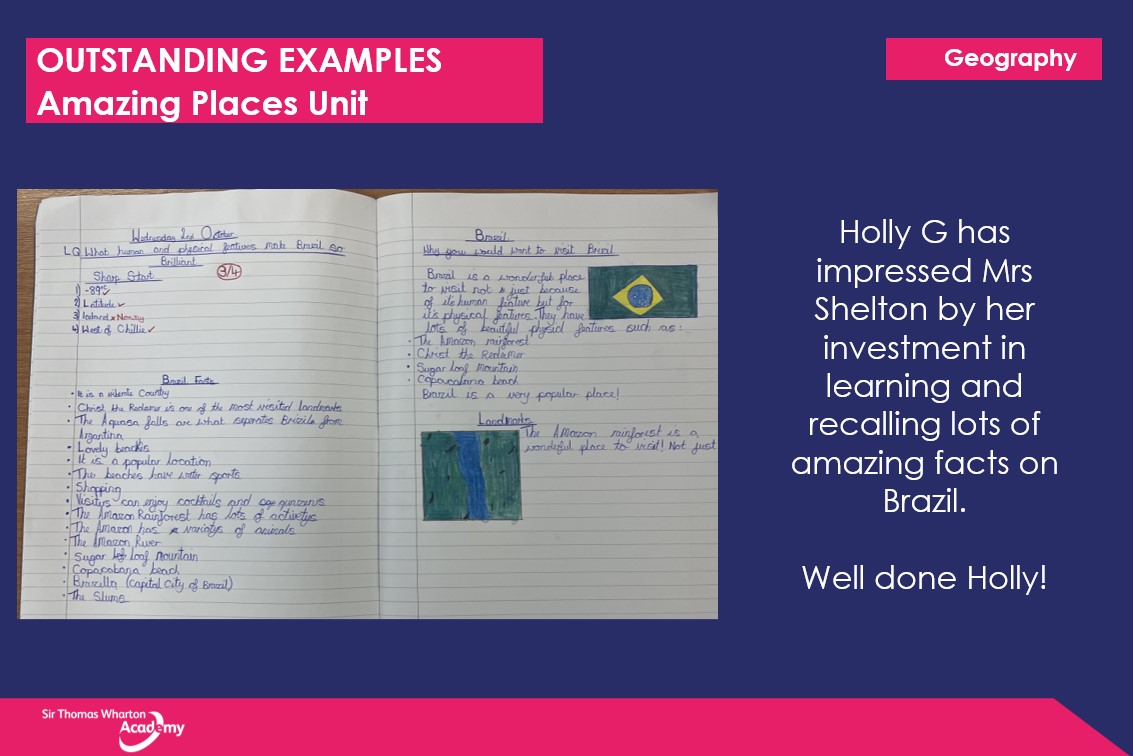 OUTSTANDING EXAMPLES
Amazing Places Unit
Geography
Wednesday 2nd October
LQ What human and physical features make Brazil so
Brilliant
Sharp Start
3/4
1) -89°c
2) Latitude
3) Iceland x Norway
4) West of Chillie
Brazil Facts
• It is a vibrante Country
• Christ the Redamer is one of the most visited landmarks
• The Aquasa falls are what seperates Brizile from
Argentina
• Lovely beaches
• It is a popular location
• The beaches have water sports
• Shopping
• Visitiys can enjoy cocktails and
• The Amazon Rainforest has lots of activitys
• The Amazon has a variatys of animals
• The Amazon River
• Sugar loaf mountain
• Copacabana beach
• Brazilla (Capital City of Brazil)
• The Slums
Brazil
Why you would want to visit Brazil
Brazil is a wonderful place
to visit not just because
of its human feature but for
it's physical features. They have
lots of beautiful physicl features such as:
• The Amazon rainforest
• Christ the Redamer
• Sugar loaf Mountain
• Copacabana beach
Brazil is a very popular place!
Landmarks
The Amazon rainforest is a
wonderful place to visit! Not just
Holly G has
impressed Mrs
Shelton by her
investment in
learning and
recalling lots of
amazing facts on
Brazil.
Well done Holly!
Sir Thomas Wharton
Academy